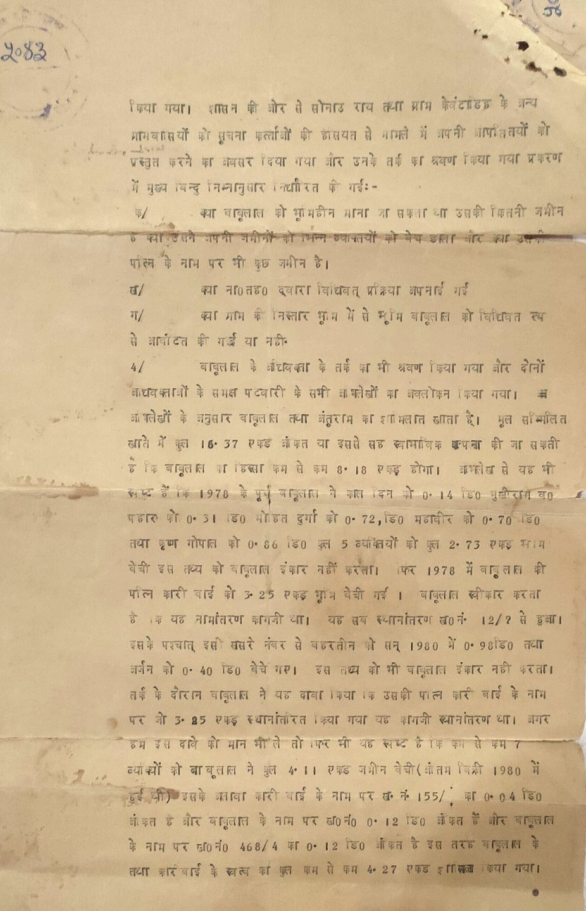 2083
56
किया गया। शासन की ओर से सोनाउ राय तथा ग्राम केवंटाडीह के अन्य
ग्रामवासियों को सूचना कर्त्ताओं की हैसियत से मामले में अपनी आपत्तियों को
प्रस्तुत करने का अवसर दिया गया और उनके तर्क का श्रवण किया गया प्रकरण
में मुख्य बिन्दु निम्नानुसार निर्धारित की गई:-
क/ क्या बाबूलाल को भूमिहीन माना जा सकता था उसकी कितनी जमीन
है क्या उसने अपनी जमीनों को भिन्न व्यक्तियों को बेच डाला और क्या उसकी
पत्नि के नाम पर भी कुछ जमीन है।
ख/ क्या ना०तह० द्वारा विधिवत् प्रक्रिया अपनाई गई
ग/ क्या ग्राम की निस्तार भूमि में से भूमि बाबूलाल को विधिवत रूप
से आवंटित की गई या नही·
4/ बाबूलाल के अधिवक्ता के तर्क का भी श्रवण किया गया और दोनों
अधिवक्ताओं के समक्ष पटवारी के सभी अभिलेखों का अवलोकन किया गया।
अभिलेखों के अनुसार बाबूलाल तथा अंतुराम का शामिलात खाता है। मूल सम्मिलित
खाते में कुल 16·37 एकड अंकित था इससे सह स्वाभाविक कल्पना की जा सकती
है कि बाबूलाल का हिस्सा कम से कम 8·18 एकड़ होगा। अभिलेख से यह भी
स्पष्ट है कि 1978 के पूर्व बाबूलाल ने काल दिन को 0·14 डि० मुखीराम व०
पहारू को 0·31 डि० मोहित दुर्गा को 0·72,डि० महावीर को 0·70 डि०
तथा कृष्ण गोपाल को 0·86 डि० कुल 5 व्यक्तियों को कुल 2·73 एकड़ भूमि
बेची इस तथ्य को बाबूलाल इंकार नहीं करता। फिर 1978 में बाबूलाल की
पत्नि कारी बाई को 3·25 एकड़ भूमि बेची गई । बाबूलाल स्वीकार करता
है कि यह नामांतरण कागजी था। यह सब स्थानांतरण ख०नं· 12/? से हुआ।
इसके पश्चात् इसी खसरे नंबर से बहरतीन को सन् 1980 में 0·98डि० तथा
अर्जन को 0·40 डि० बेचे गए। इस तथ्य को भी बाबूलाल इंकार नही करता।
तर्क के दौरान बाबूलाल ने यह दावा किया कि उसकी पत्नि कारी बाई के नाम
पर जो 3·25 एकड़ स्थानांतरित किया गया यह कागजी स्थानांतरण था। अगर
हम इस दावे को मान भी ले तो फिर भी यह स्पष्ट है कि कम से कम 7
व्यक्तियों को बाबूलाल ने कुल 4·11 एकड जमीन बेची(अंतिम बिक्री 1980 में
हुई थी) इसके अलावा कारी बाई के नाम पर ख·नं· 155/ का 0·04 डि०
अंकित है और बाबूलाल के नाम पर ख०नं० 0·12 डि० अंकित है और बाबूलाल
के नाम पर ख०नं० 468/4 का 0·12 डि० अंकित है इस तरह बाबूलाल के
तथा कारी बाई के स्वत्व का कुल कम से कम 4·27 एकड़ किया गया।